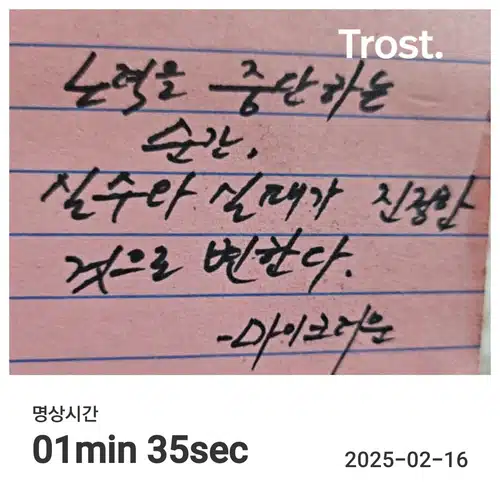 Trost.
노력을 중단하는
순간,
실수와 실패가 진정한
것으로 변한다.
-마이크
명상시간
01min 35sec
2025-02-16